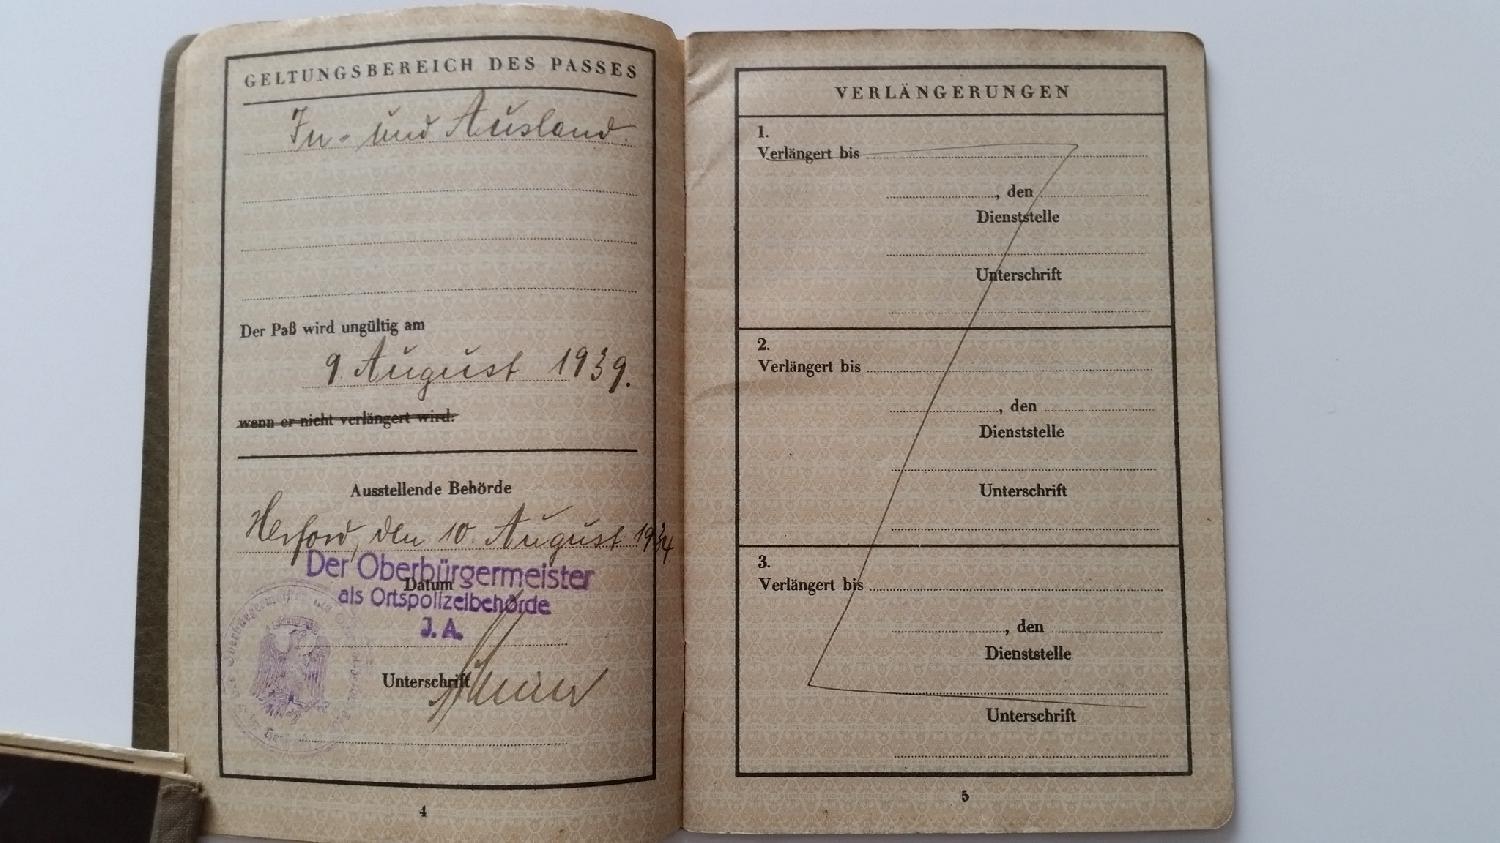 GELTUNGSBEREICH DES PASSES
In- und Ausland.
Der Paß wird ungültig am
9. August 1939.
wenn er nicht verlängert wird.
Ausstellende Behörde
Herford, den 10. August 1934
Der Oberbürgermeister
Datum
als Ortspolizeibehörde
J. A.
Unterschrift
4
VERLÄNGERUNGEN
1.
Verlängert bis
, den
Dienststelle
Unterschrift
2.
Verlängert bis
, den
Dienststelle
Unterschrift
3.
Verlängert bis
, den
Dienststelle
Unterschrift
5